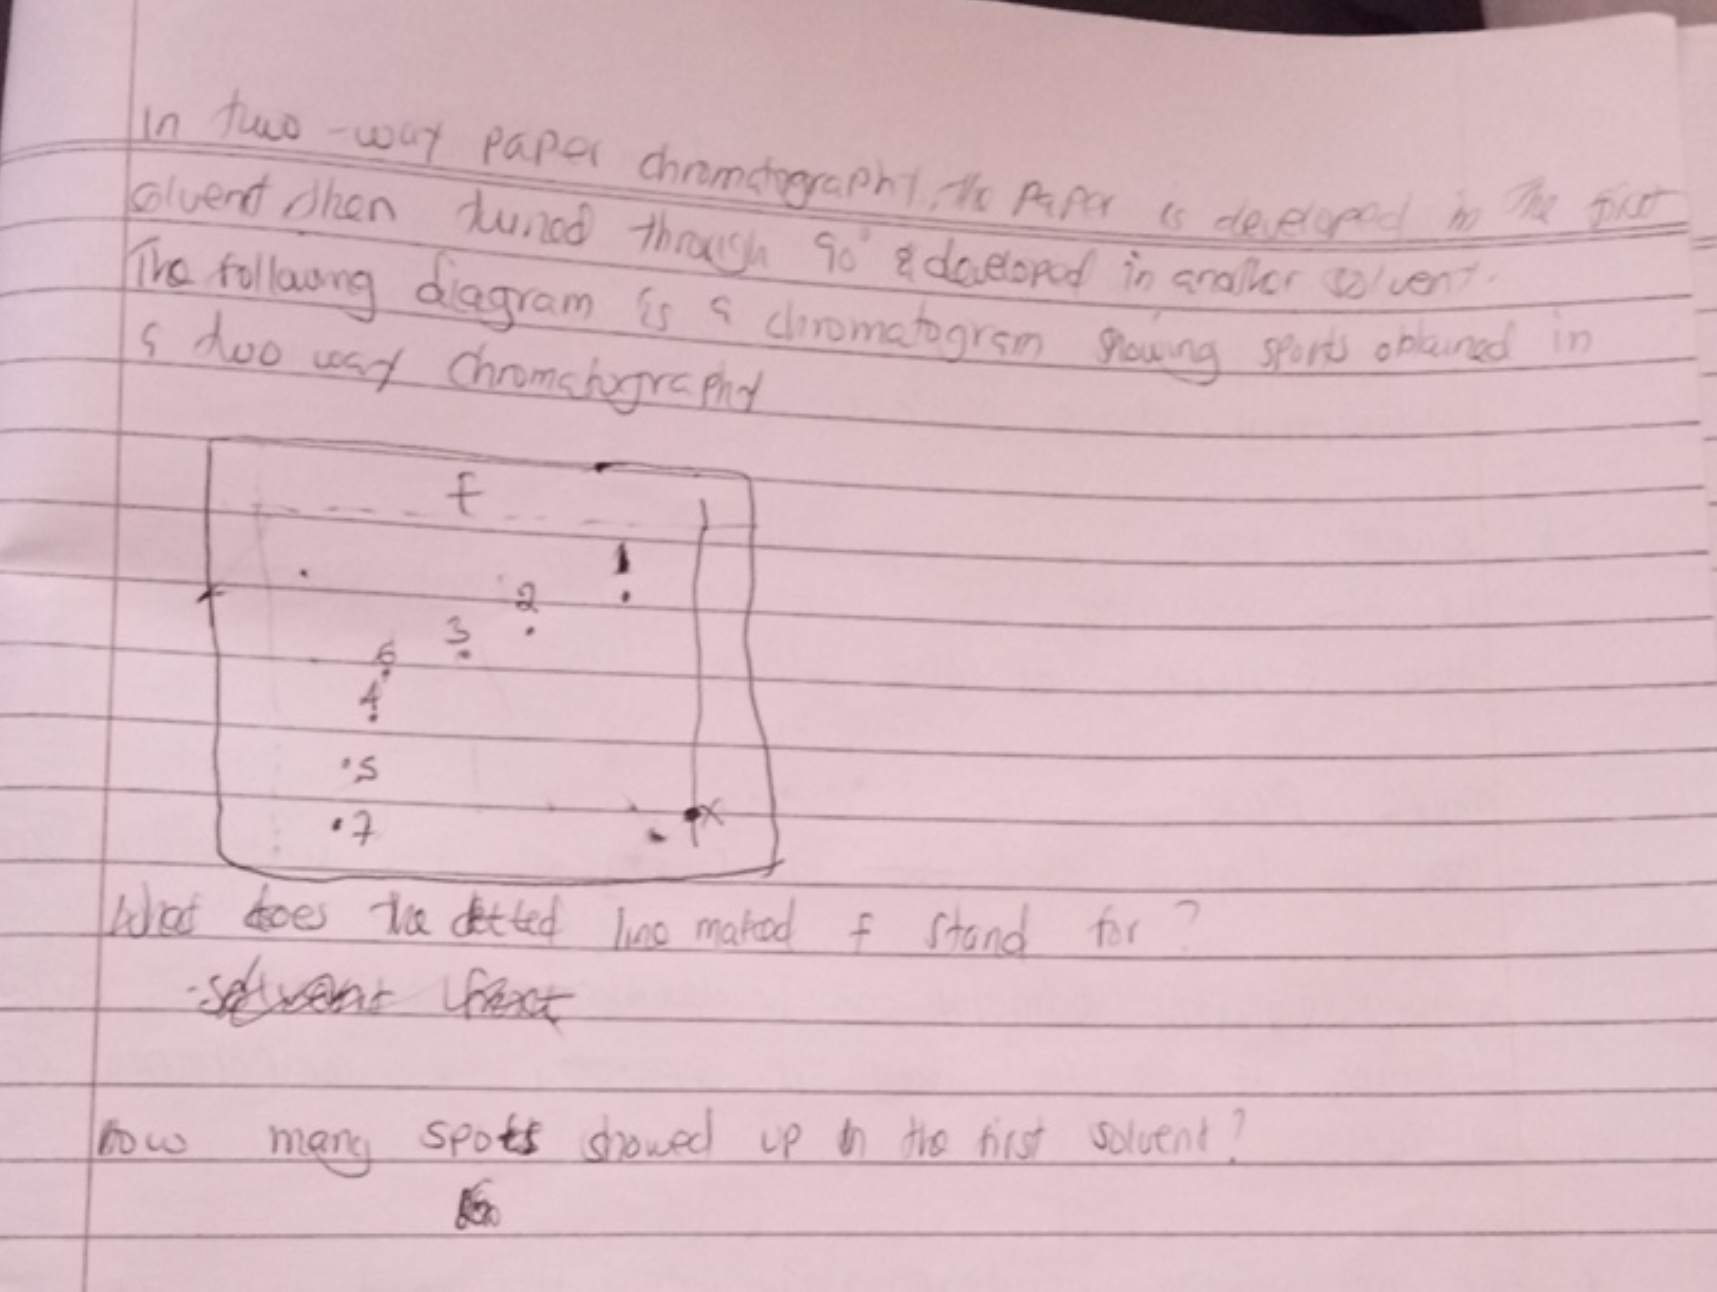 In two-way paper chromatography, the paper is developed in the first
solvent then tuned through 90° & developed in another solvent.
The following diagram is a chromatogram showing sports obtained in
a two way chromatography
f
1
2
3
6
4
5
7
X
What does the dotted line maked f stand for?
How many spots showed up in the first solvent?